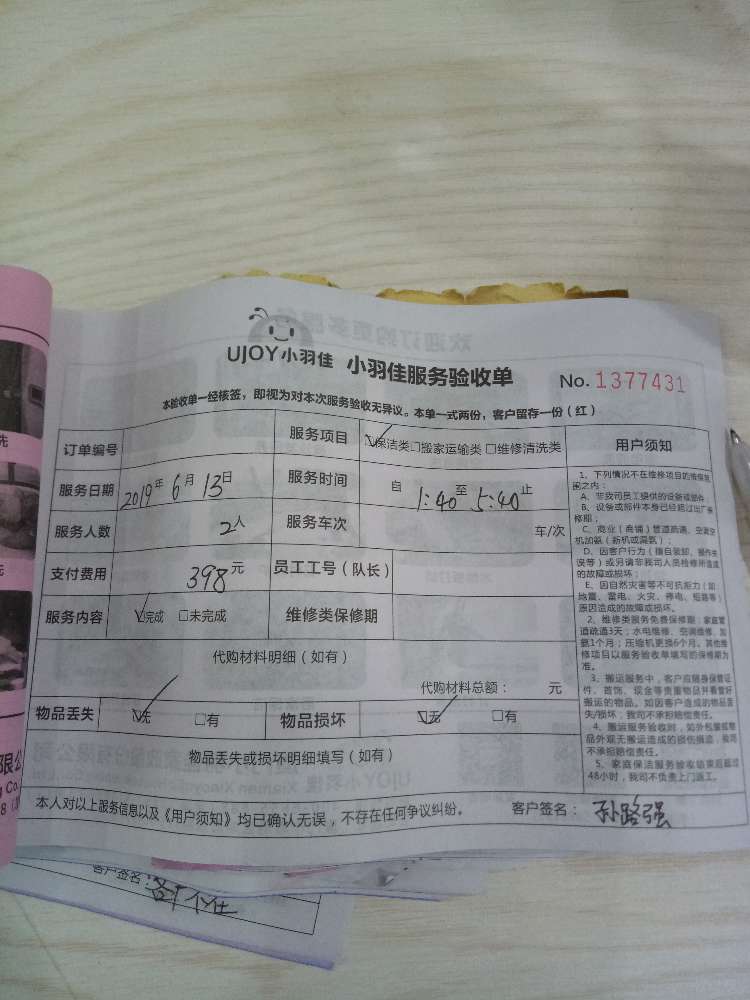 UJOY小羽佳 小羽佳服务验收单 No. 1377431
本验收单一经核签，即视为对本次服务验收无异议。本单一式两份，客户留存一份（红）
订单编号 服务项目 ☑保洁类□搬家运输类 □维修清洗类 用户须知
服务日期 2019年 6月 13日 服务时间 自 1:40 至 5:40 止
服务人数 2人 服务车次 车/次
支付费用 398元 员工工号（队长）
服务内容 ☑完成 □未完成 维修类保修期
代购材料明细（如有）
代购材料总额： 元
物品丢失 ☑无 □有 物品损坏 ☑无 □有
物品丢失或损坏明细填写（如有）
本人对以上服务信息以及《用户须知》均已确认无误，不存在任何争议纠纷。 客户签名： 孙路强
1、下列情况不在维修项目的维保范
围之内：
A、非我司员工提供的设备或部件
B、设备或部件本身已经超过出厂保
修期；
C、商业（商铺）管道疏通、空调空
机加氨（新机或漏氨）；
D、因客户行为（擅自装卸、操作失
误等）或另请非我司人员检修所造成
的故障或损坏；
E、因自然灾害等不可抗拒力（如
地震、雷电、火灾、停电、短路等）
原因造成的故障或损坏。
2、维修类服务免费保修期：家庭管
道疏通3天；水电维修、空调维修、加
氨1个月；压缩机更换6个月。其他维
修项目以服务验收单填写的保修期为
准。
3、搬运服务中，客户应随身保管证
件、首饰、现金等贵重物品并看管好
搬运的物品。如因客户造成的物品丢
失/损坏，我司不承担赔偿责任。
4、搬运服务验收时，如外包装或物
品外观无搬运造成的损伤痕迹，我司
不承担赔偿责任。
5、家庭保洁服务验收结束后超过
48小时，我司不负责上门返工。
客户签名：